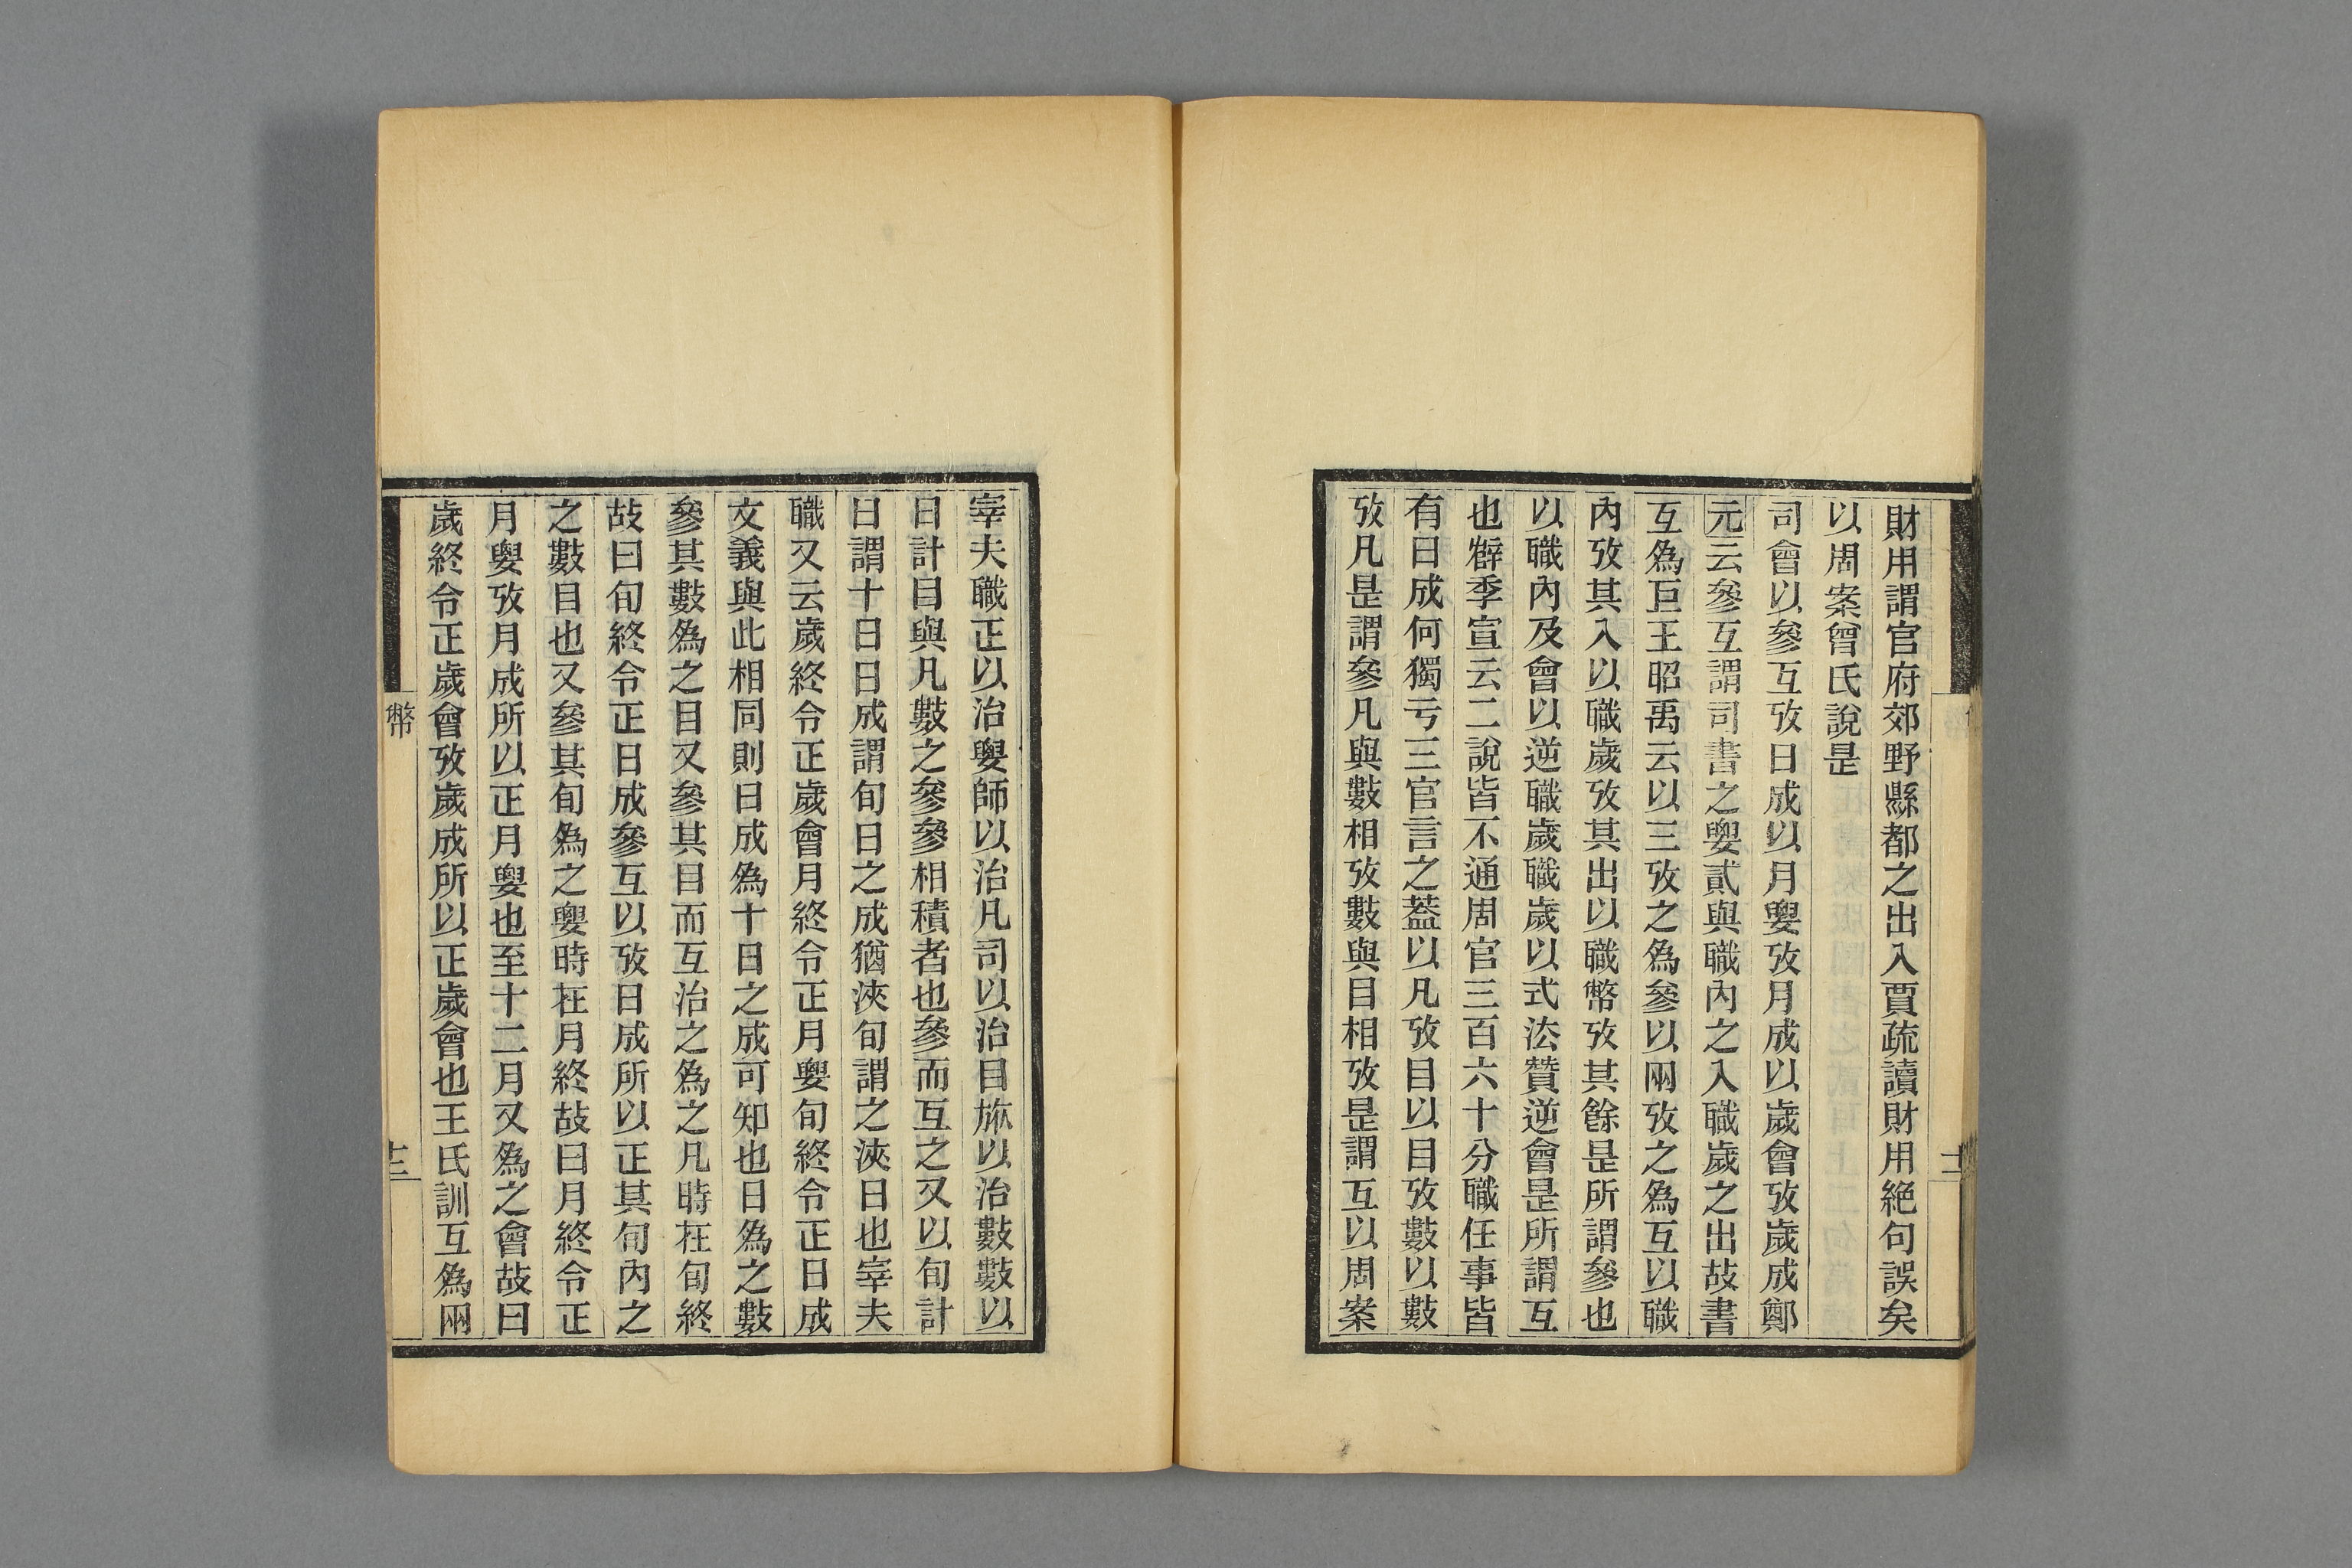 財用謂官府郊野縣都之出入賈疏讀財用絕句誤矣
以周案曾氏說是
司會以參互攷日成以月㚻攷月成以歲會攷歲成鄭
元云參互謂司書之㚻貳與職內之入職歲之出故書
互爲巨王昭禹云以三攷之爲參以兩攷之爲互以職
內攷其入以職歲攷其出以職幣攷其餘是所謂參也
以職內及會以逆職歲職歲以式法贊逆會是所謂互
也薛季宣云二說皆不通周官三百六十分職任事皆
有日成何獨亏三官言之葢以凡攷目以目攷數以數
攷凡是謂參凡與數相攷數與目相攷是謂互以周案
宰夫職正以治㚻師以治凡司以治目旅以治數數以
日計目與凡數之參參相積者也參而互之又以旬計
日謂十日日成謂旬日之成猶浹旬謂之浹日也宰夫
職又云歲終令正歲會月終令正月㚻旬終令正日成
文義與此相同則日成爲十日之成可知也日爲之數
參其數爲之目又參其目而互治之爲之凡時在旬終
故曰旬終令正日成參互以攷日成所以正其旬內之
之數目也又參其旬爲之㚻時在月終故曰月終令正
月㚻攷月成所以正月㚻也至十二月又爲之會故曰
歲終令正歲會攷歲成所以正歲會也王氏訓互爲兩
幣
十二